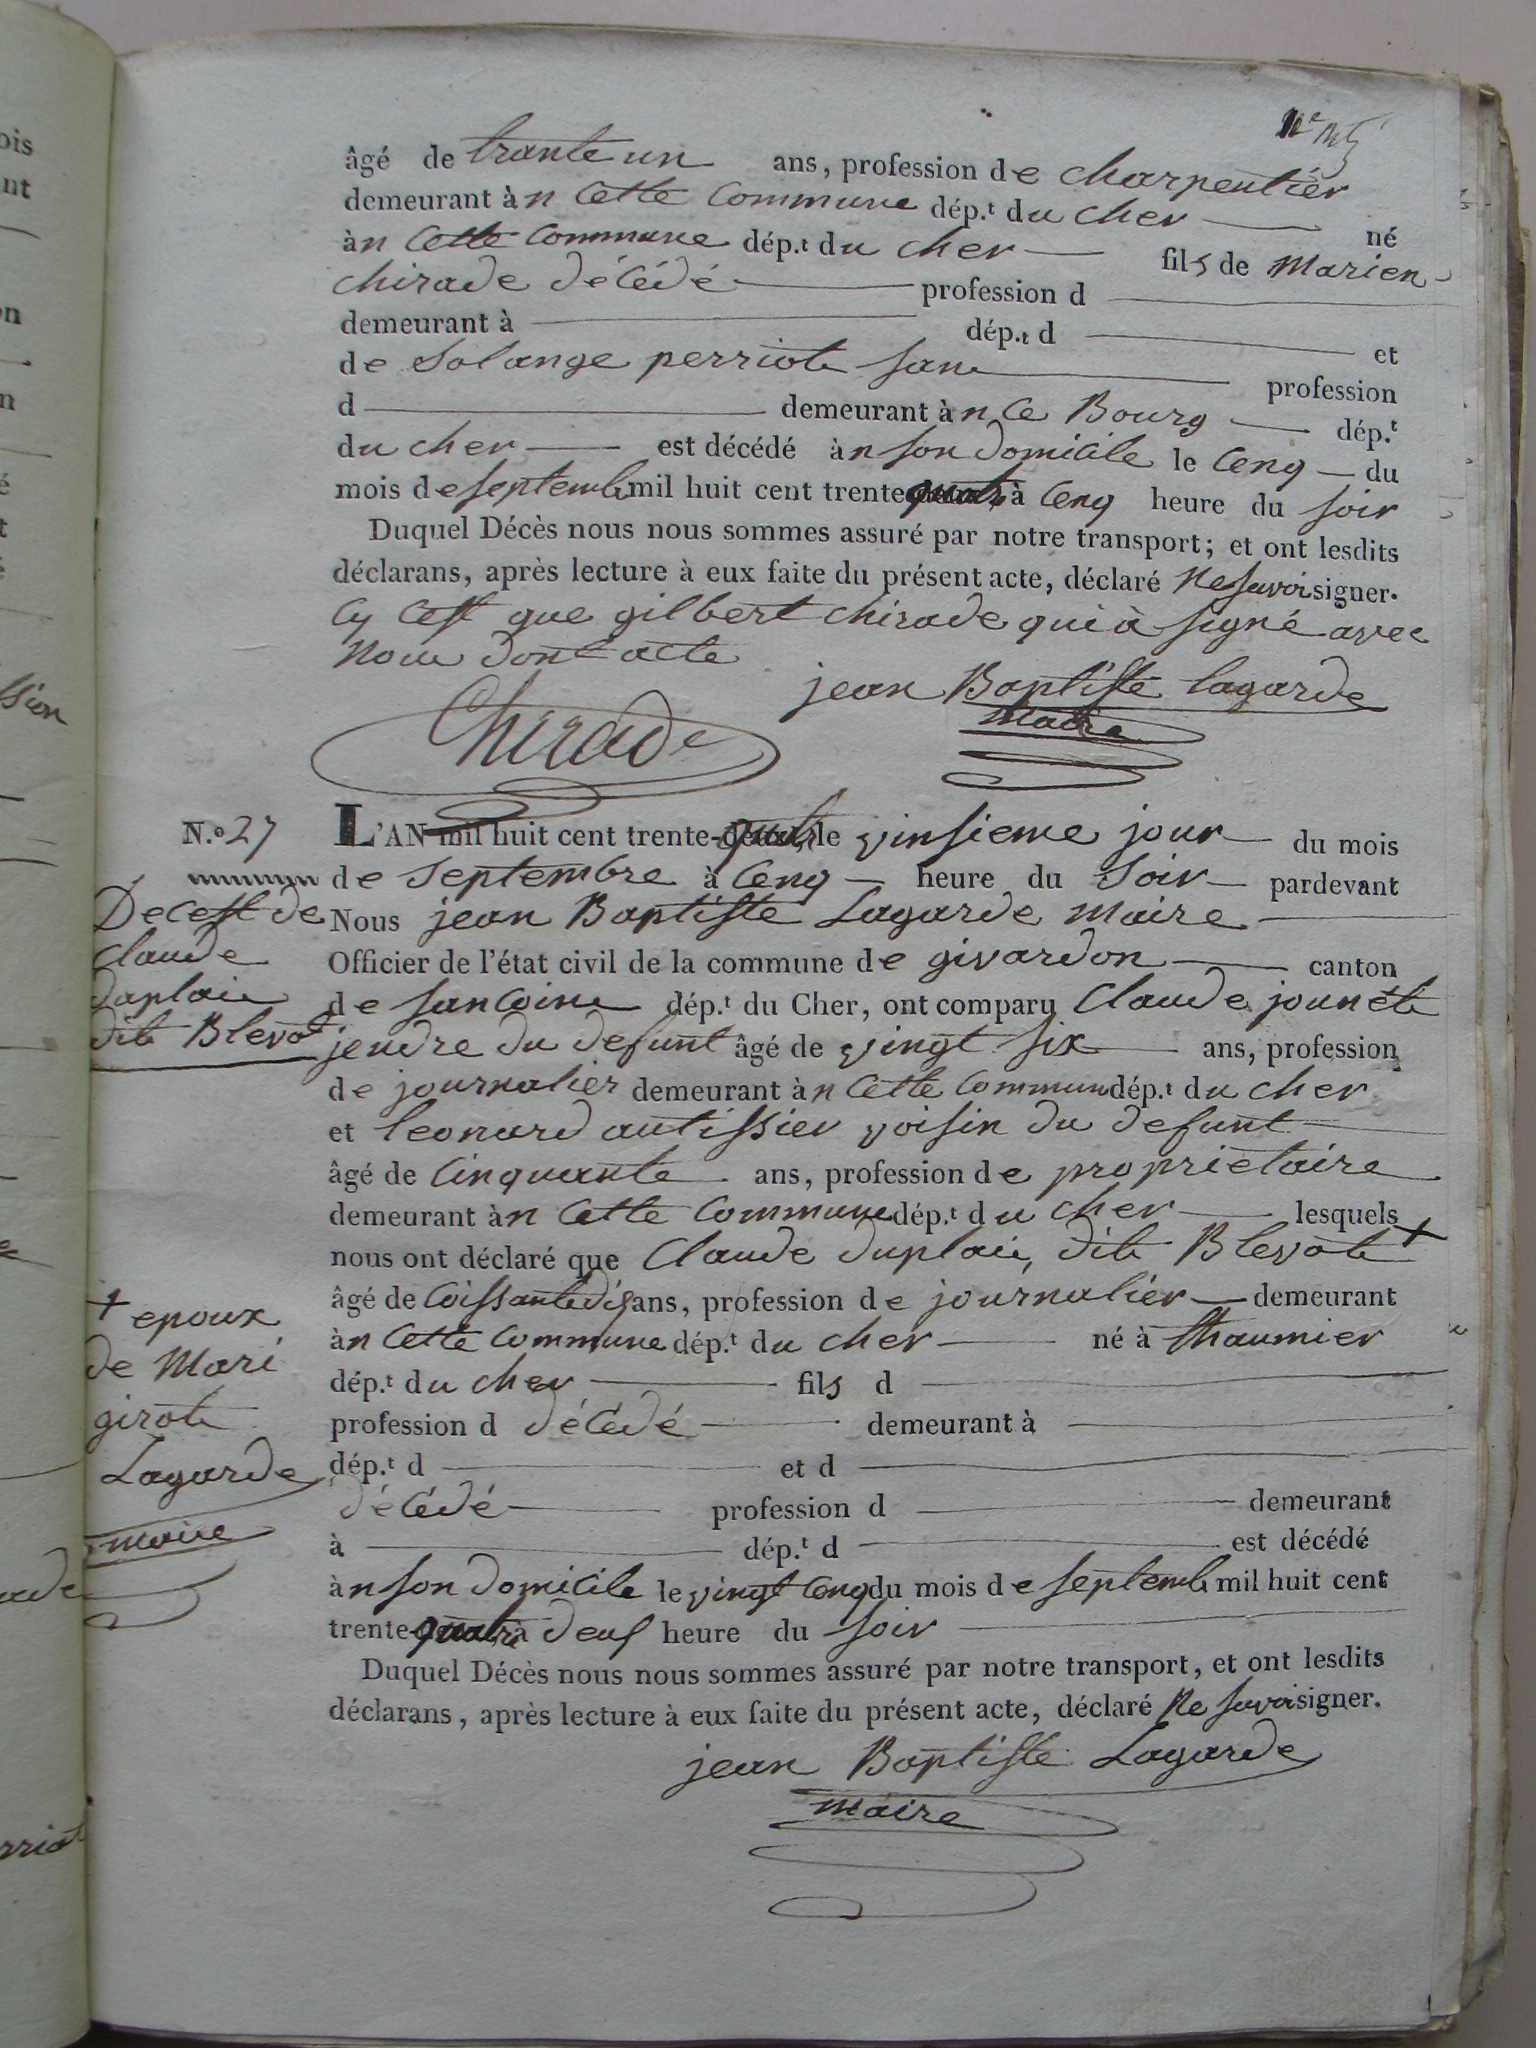 âgé de trante un ans, profession de charpentier
demeurant àn cette commune dép.t du cher
né
àn cette commune dép.t du cher fils de Marien
chirade décédé profession d
demeurant à dép.t d et
de Solange perriote profession
d demeurant àn ce Bourg dép.t
du cher est décédé àn son domicile le cenq du
mois de septemb mil huit cent trente quatre à cenq heure du soir
Duquel Décès nous nous sommes assuré par notre transport; et ont lesdits
déclarans, après lecture à eux faite du présent acte, déclaré ne savoir signer.
Cy cest que gilbert chirade qui à signé avec
nous dont acte
jean Baptiste lagarde
maire
Chirade
N.o 27
L'AN mil huit cent trente-quatre le vinsieme jour du mois
de septembre à cenq heure du soir pardevant
Decest de
claude
duplaie
dit Blevot
Nous jean Baptiste Lagarde maire
Officier de l'état civil de la commune de givardon canton
de sancoine dép.t du Cher, ont comparu Claude jounéte
jendre du defunt âgé de vingt six ans, profession
de journalier demeurant àn cette commun dép.t du cher
et leonard autissier voisin du defunt
âgé de cinquante ans, profession de proprietaire
demeurant àn cette commune dép.t du cher lesquels
nous ont déclaré que Claude duplaie, dite Blevote +
âgé de coissante dis ans, profession de journalier demeurant
àn cette commune dép.t du cher né à thaumier
dép.t du cher fils d
profession d décédé demeurant à
dép.t d et d
décédé profession d demeurant
à dép.t d est décédé
àn son domicile le vingt cenq du mois de septemb mil huit cent
trente-quatre à deus heure du soir
+ epoux
de Mari
girote
Lagarde
maire
Duquel Décès nous nous sommes assuré par notre transport, et ont lesdits
déclarans, après lecture à eux faite du présent acte, déclaré ne savoir signer.
jean Baptiste Lagarde
maire